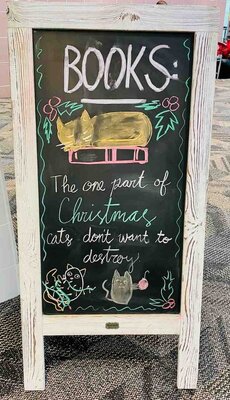 BOOKS:
The one part of
Christmas
cats don't want to
destroy